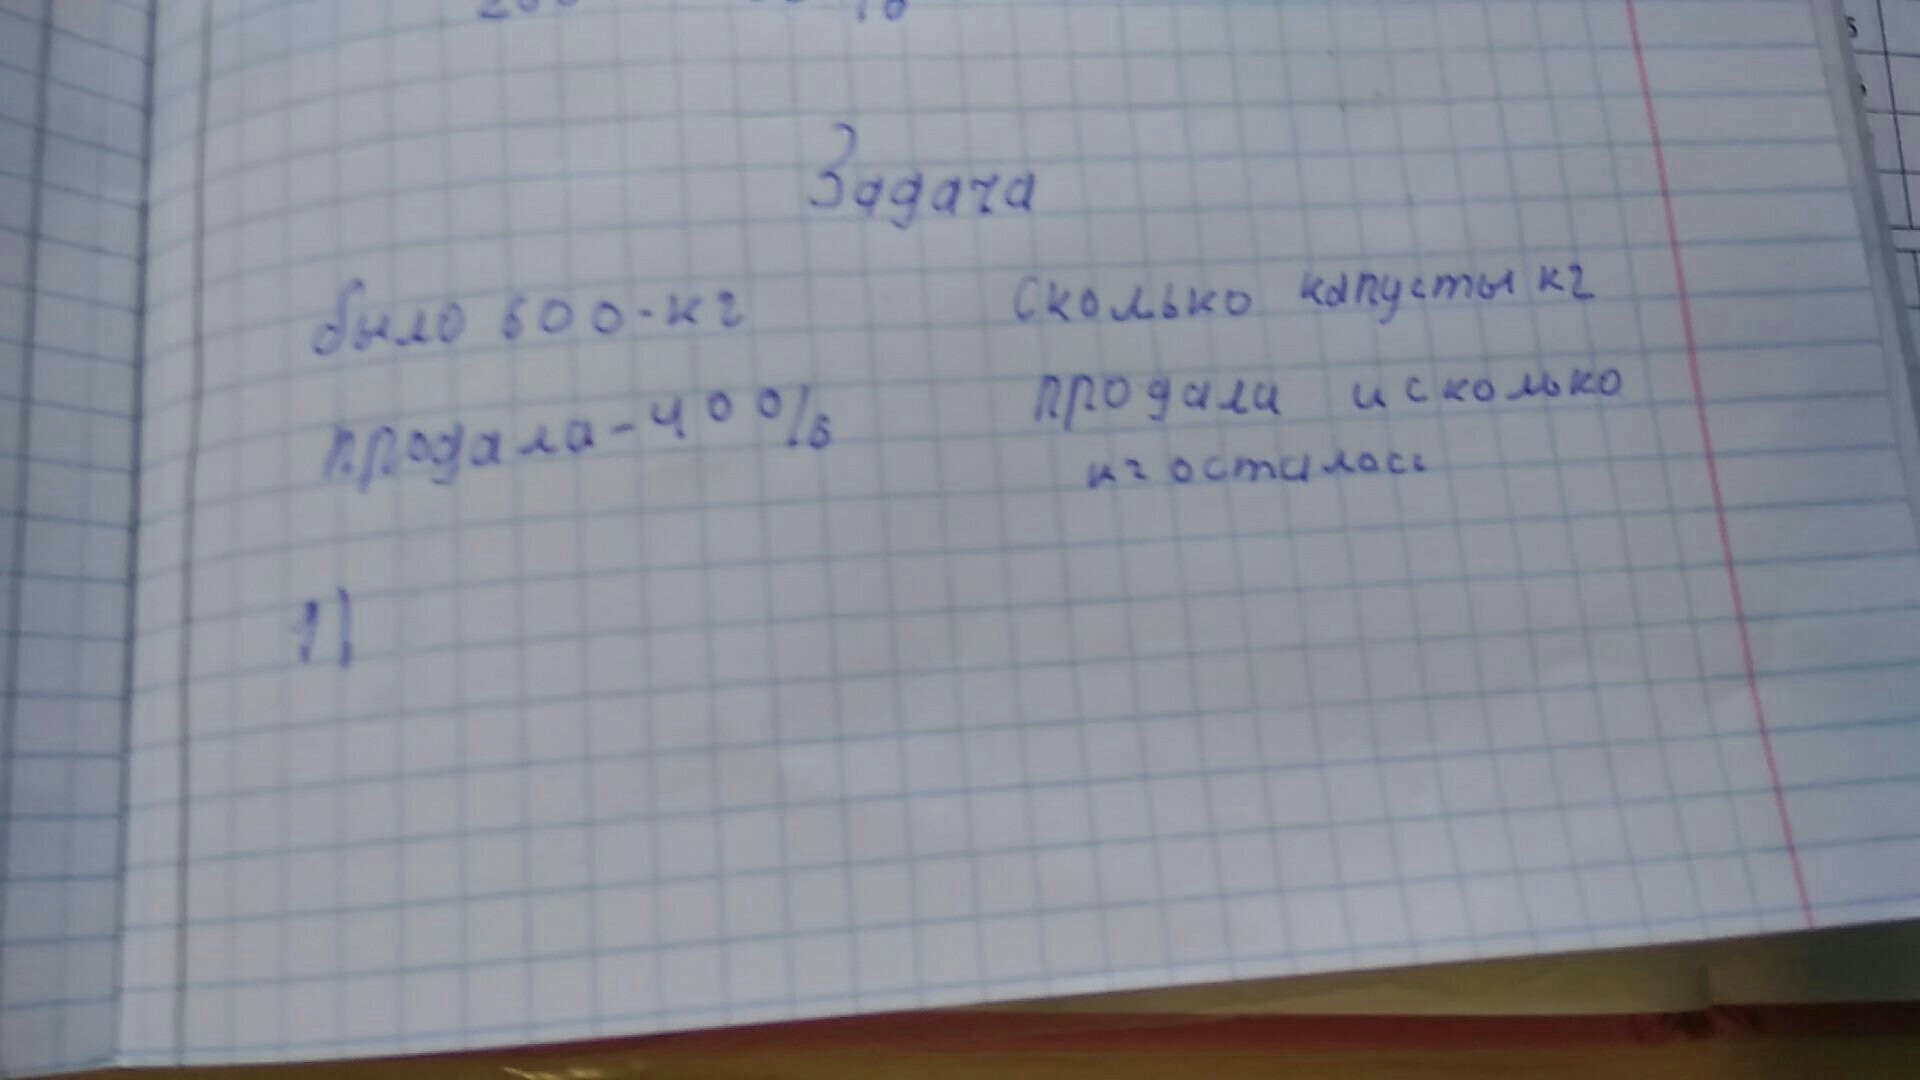 Задача
было 600-кг
продала-40%
Сколько капусты кг
продали и сколько
кг осталось
1)